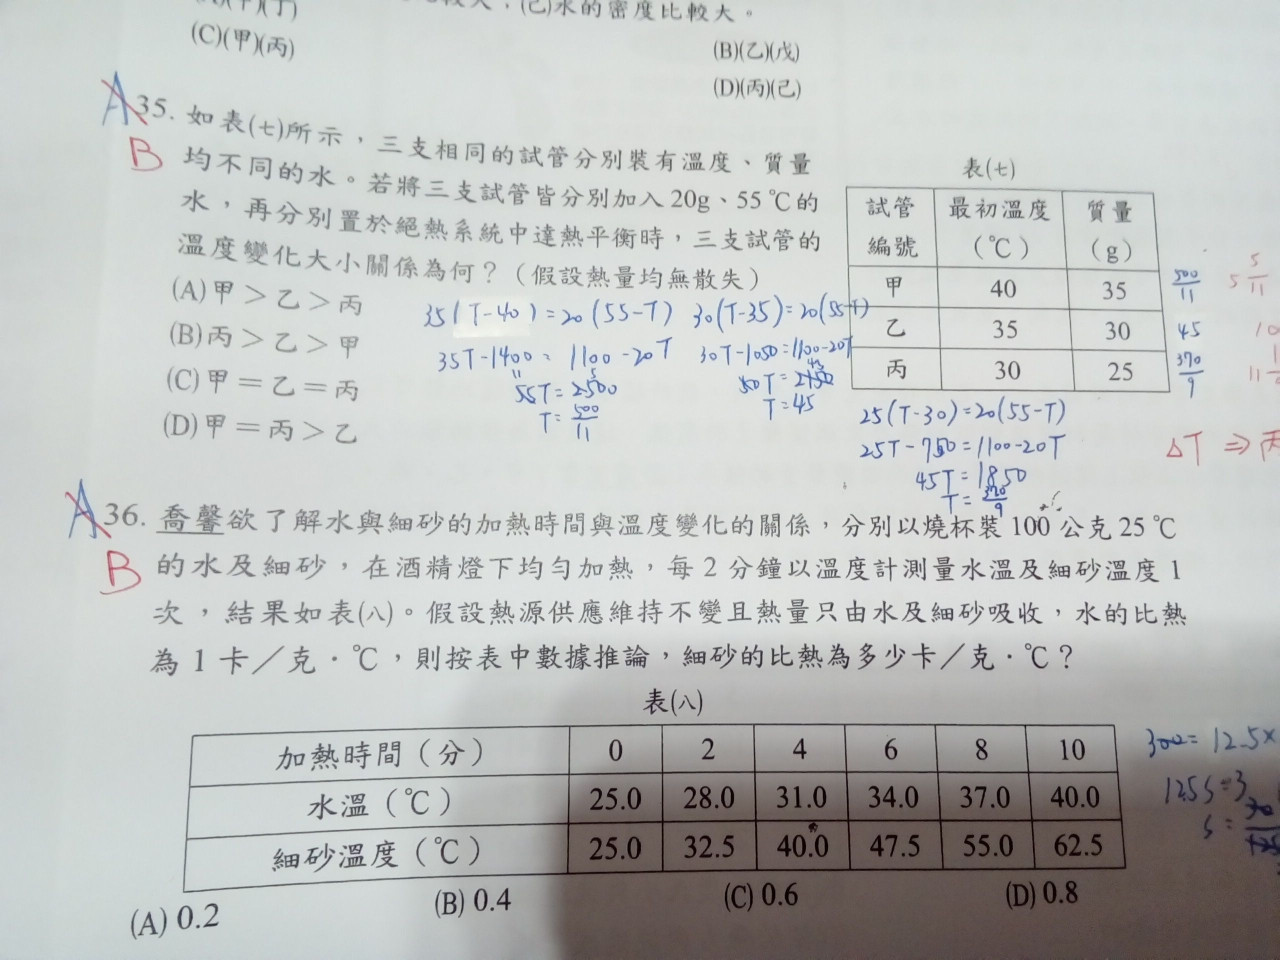 (C)(甲)(丙)
，(己)水的密度比較大。
(B)(乙)(戊)
(D)(丙)(己)
A
B
35. 如表(七)所示，三支相同的試管分別裝有溫度、質量
均不同的水。若將三支試管皆分別加入20g、55℃的
水，再分別置於絕熱系統中達熱平衡時，三支試管的
溫度變化大小關係為何？（假設熱量均無散失）
(A)甲＞乙＞丙
(B)丙＞乙＞甲
(C)甲＝乙＝丙
(D)甲＝丙＞乙
表(七)
試管編號 最初溫度（℃） 質量（g）
甲 40 35
乙 35 30
丙 30 25
500/11
45
370/9
5 5/11
35(T-40)=20(55-T)
35T-1400=1100-20T
55T=2500
T=500/11
30(T-35)=20(55-T)
30T-1050=1100-20T
T=45
25(T-30)=20(55-T)
25T-750=1100-20T
45T=1850
T=370/9
ΔT⇒丙
A
B
36. 喬馨欲了解水與細砂的加熱時間與溫度變化的關係，分別以燒杯裝100公克25℃
的水及細砂，在酒精燈下均勻加熱，每2分鐘以溫度計測量水溫及細砂溫度1
次，結果如表(八)。假設熱源供應維持不變且熱量只由水及細砂吸收，水的比熱
為1卡／克．℃，則按表中數據推論，細砂的比熱為多少卡／克．℃？
表(八)
加熱時間（分） 0 2 4 6 8 10
水溫（℃） 25.0 28.0 31.0 34.0 37.0 40.0
細砂溫度（℃） 25.0 32.5 40.0 47.5 55.0 62.5
300=12.5×
(A) 0.2 (B) 0.4 (C) 0.6 (D) 0.8